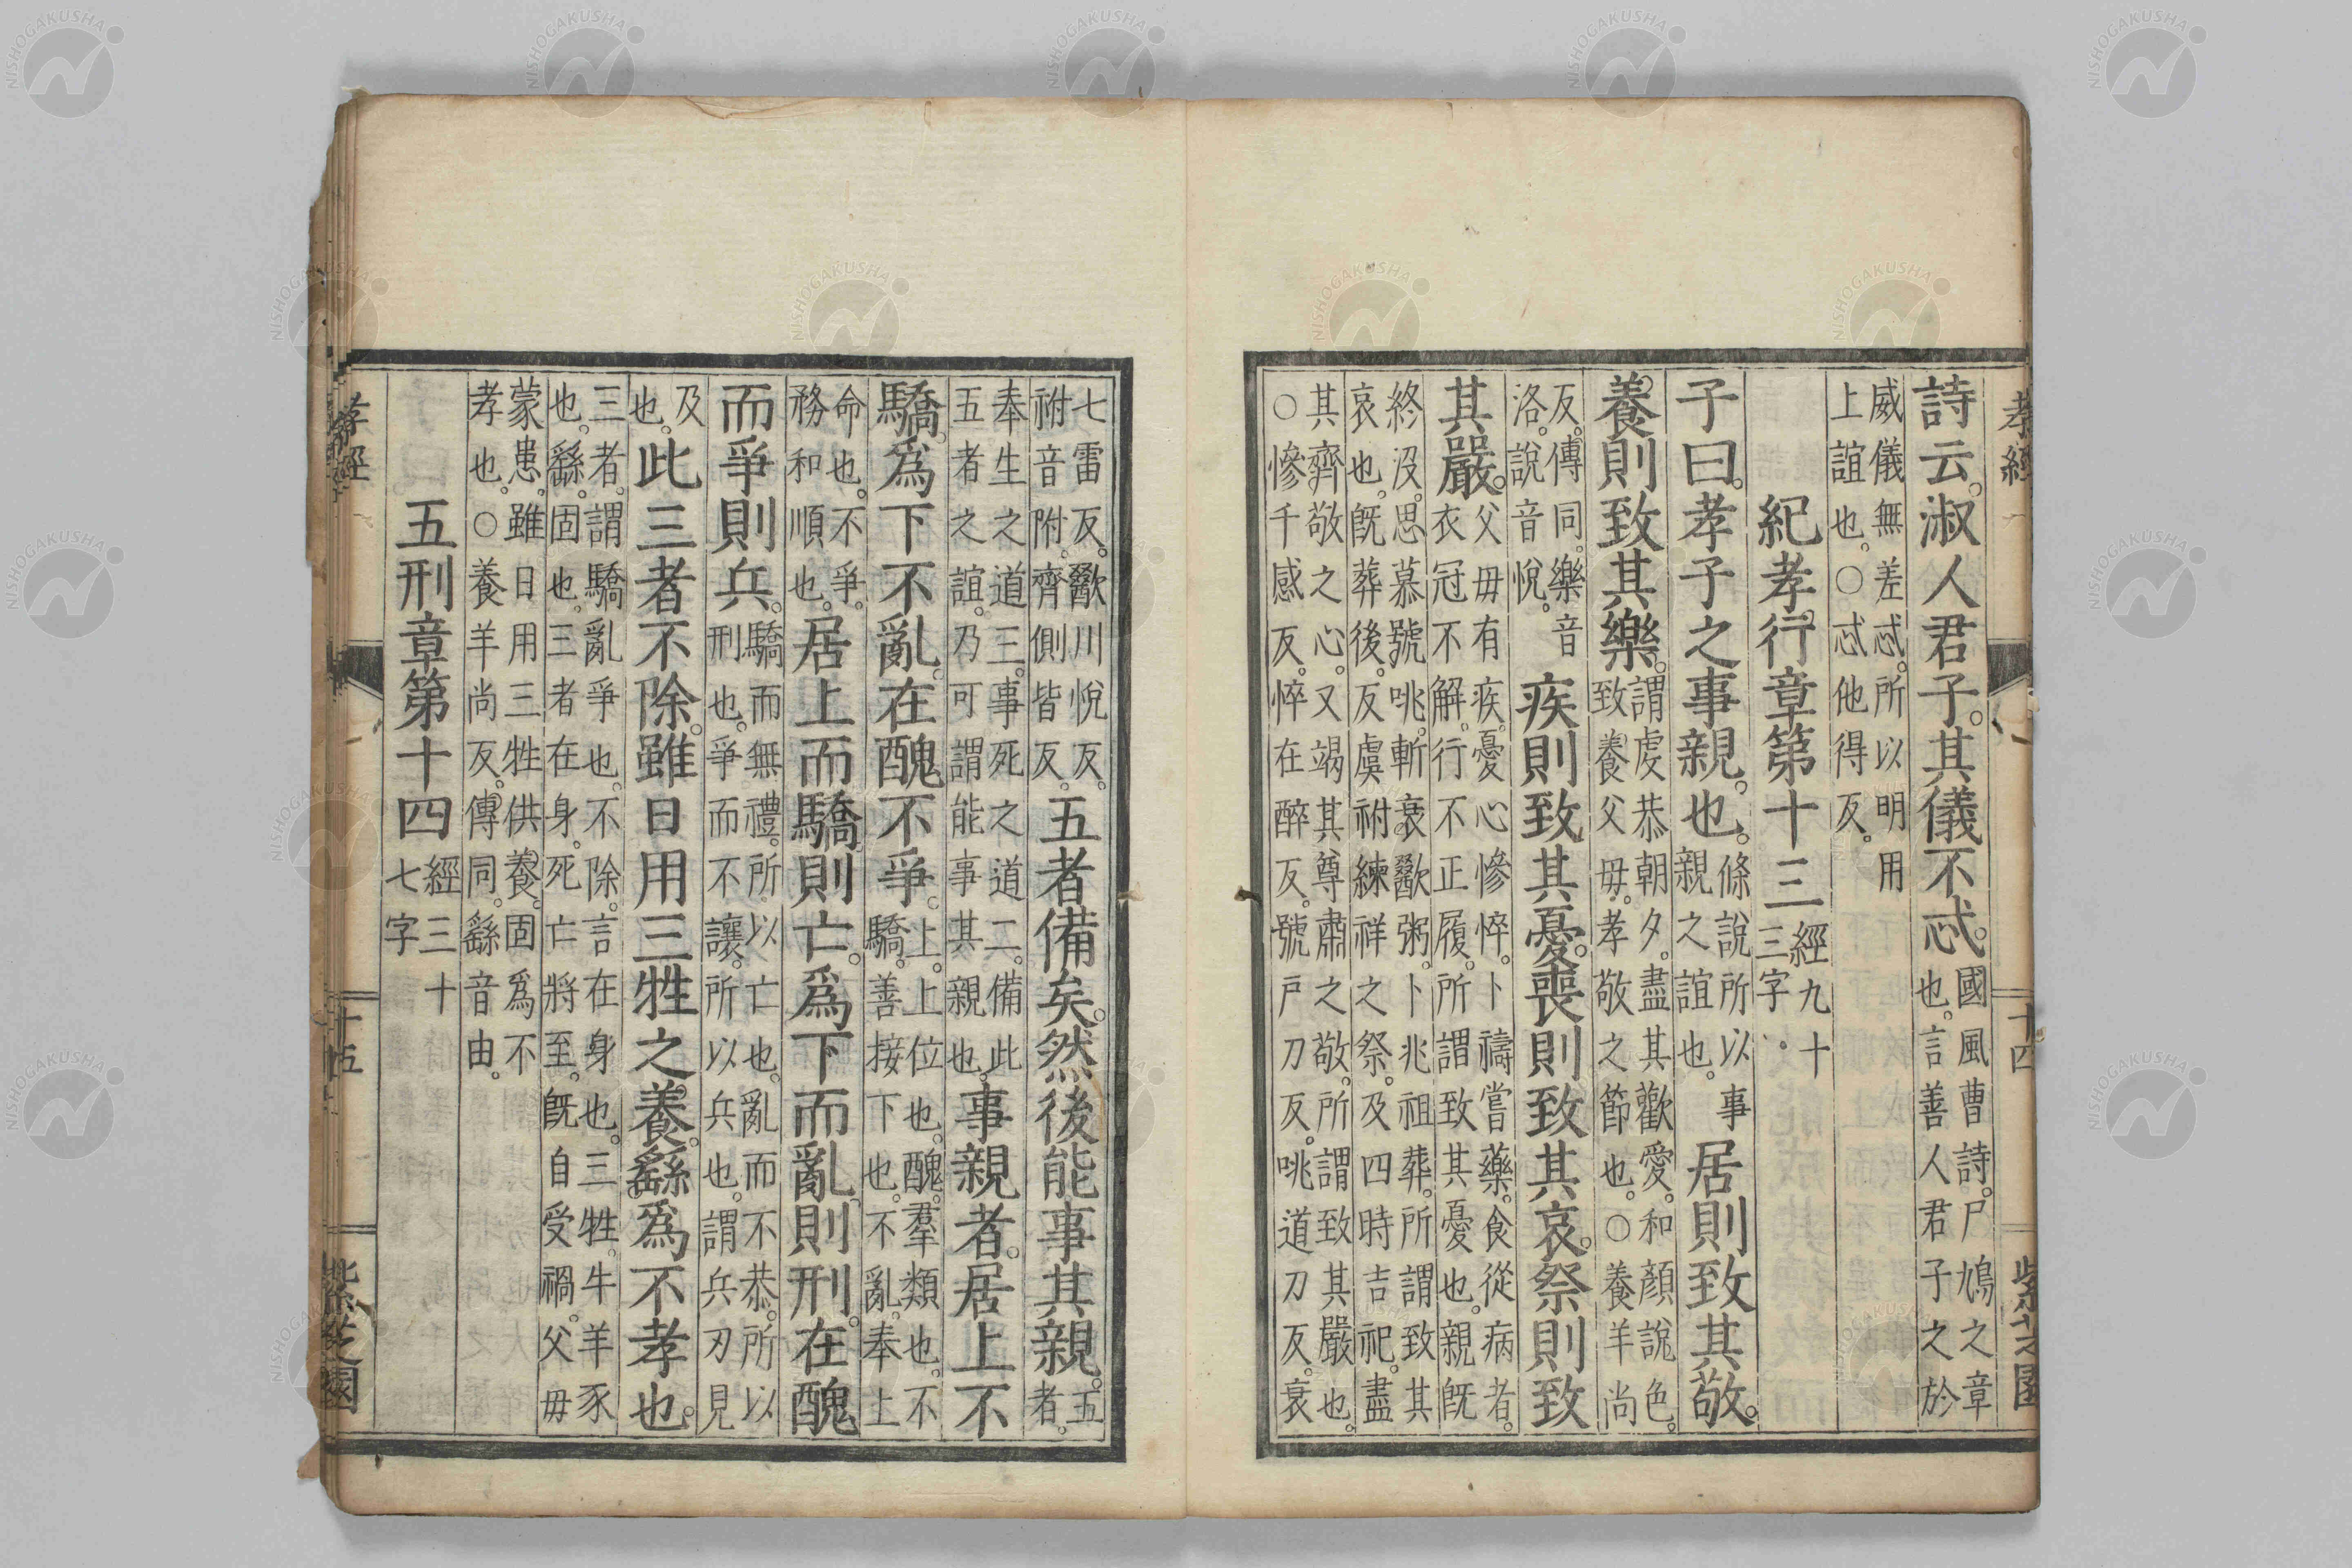 詩云。淑人君子。其儀不忒。國風曹詩。尸鳩之章
也。言善人君子之於
威儀無差忒。所以明用
上誼也。○忒他得反。
紀孝行章第十三經九十
三字
子曰。孝子之事親也。條說所以事
親之誼也。居則致其敬。
養則致其樂。謂虔恭朝夕。盡其歡愛。和顏說色。
致養父毋。孝敬之節也。○養羊尚
反。傳同。樂音
洛。說音悅。疾則致其憂。喪則致其哀。祭則致
其嚴。父毋有疾。憂心慘悴。卜禱嘗藥。食從病者。
衣冠不解。行不正履。所謂致其憂也。親旣
終沒。思慕號咷。斬衰歠粥。卜兆祖葬。所謂致其
哀也。旣葬後。反虞祔練祥之祭。及四時吉祀。盡
其齊敬之心。又竭其尊肅之敬。所謂致其嚴也。
○慘千感反。悴在醉反。號戸刀反。咷道刀反。衰
孝經
十四
紫芝園
七雷反。歠川悅反。
祔音附。齊側皆反。五者備矣。然後能事其親。五
者。
奉生之道三。事死之道二。備此
五者之誼。乃可謂能事其親也。事親者。居上不
驕。爲下不亂。在醜不爭。上。上位也。醜。羣類也。不
驕。善接下也。不亂。奉上
命也。不爭。
務和順也。居上而驕則亡。爲下而亂則刑。在醜
而爭則兵。驕而無禮。所以亡也。亂而不恭。所以
刑也。爭而不讓。所以兵也。謂兵刃見
及
也。此三者不除。雖日用三牲之養。繇爲不孝也。
三者。謂驕亂爭也。不除。言在身也。三牲。牛羊豕
也。繇。固也。三者在身。死亡將至。旣自受禍。父毋
蒙患。雖日用三牲供養。固爲不
孝也。○養羊尚反。傳同。繇音由。
五刑章第十四經三十
七字
孝經
十五
紫芝園
NISHOGAKUSHA